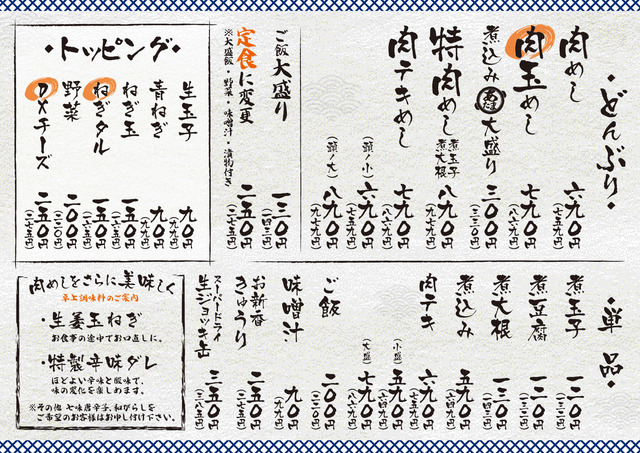 ・どんぶり・
肉めし
六九〇円
(七五九円)
肉玉めし
七九〇円
(八六九円)
煮込み
大盛り
三〇〇円
(三三〇円)
特肉めし
煮玉子
煮大根
八九〇円
(九七九円)
肉テキめし
七九〇円
(八六九円)
(頭ノ小)
六九〇円
(七五九円)
(頭ノ大)
八九〇円
(九七九円)
ご飯大盛り
一三〇円
(一四三円)
定食に変更
※大盛飯・野菜・味噌汁・漬物付き
二五〇円
(二七五円)
・トッピング・
生玉子
九〇円
(九九円)
青ねぎ
九〇円
(九九円)
ねぎ玉
一五〇円
(一六五円)
ねぎタル
一五〇円
(一六五円)
野菜
二〇〇円
(二二〇円)
DXチーズ
二五〇円
(二七五円)
・単品・
煮玉子
一二〇円
(一三二円)
煮豆腐
一二〇円
(一三二円)
煮大根
一三〇円
(一四三円)
煮込み
五九〇円
(六四九円)
肉テキ
六九〇円
(七五九円)
(小盛)
五九〇円
(六四九円)
(大盛)
七九〇円
(八六九円)
ご飯
二〇〇円
(二二〇円)
味噌汁
九〇円
(九九円)
お新香
きゅうり
二五〇円
(二七五円)
スーパードライ
生ジョッキ缶
三五〇円
(三八五円)
肉めしをさらに美味しく
卓上調味料のご案内
・生姜玉ねぎ
お食事の途中でお口直しに。
・特製辛味ダレ
ほどよい辛味と酸味で、
味の変化を楽しめます。
※その他 七味唐辛子、和がらしを
ご希望のお客様はお申し付け下さい。